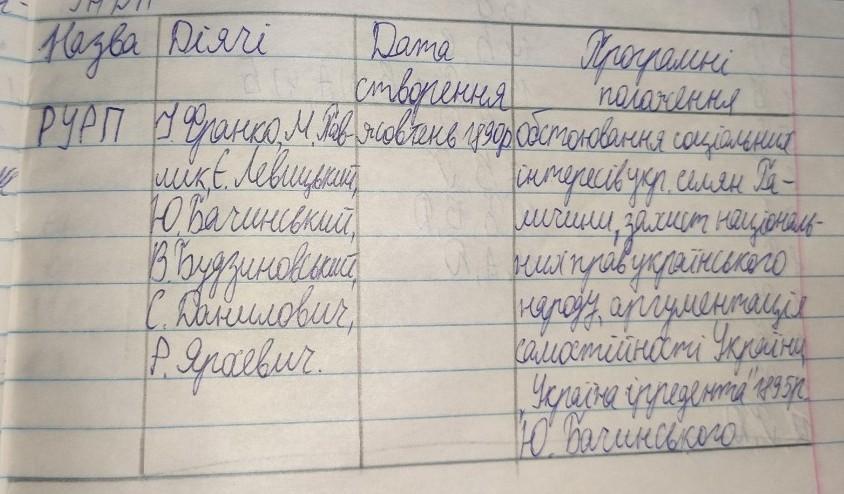 Назва Діячі Дата Програмні
створення положення
РУРП І. Франко, М. Пав- жовтень 1890р. обстоювання соціальних
лик, Є. Левицький, інтересів укр. селян Га-
Ю. Бачинський, личини, захист національ-
В. Будзиновський, них прав українського
С. Данилович, народу, аргументація
Р. Яросевич. самостійності України
"Україна ірредента" 1895р.
Ю. Бачинського